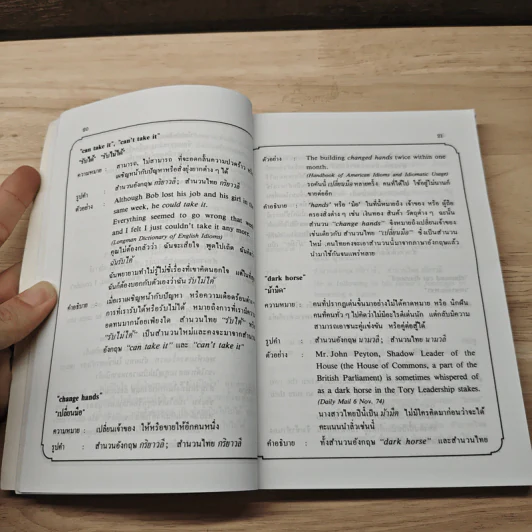 80
"can take it", "can't take it"
"รับได้" "รับไม่ได้"
ความหมาย : สามารถ, ไม่สามารถ ที่จะอดกลั้นความปวดร้าว หรือ
เผชิญหน้ากับปัญหาหรือสิ่งยุ่งยากต่าง ๆ ได้
รูปคำ : สำนวนอังกฤษ กริยาวลี; สำนวนไทย กริยาวลี
ตัวอย่าง : Although Bob lost his job and his girl in the
same week, he could take it.
Everything seemed to go wrong that week
and I felt I just couldn't take it any more.
(Longman Dictionary of English Idioms)
คุณไม่ต้องกลัวว่า ฉันจะเสียใจ พูดไปเถิด
ฉันรับได้
ฉันพยายามทำไม่รู้ไม่ชี้เรื่องที่เขาคิดนอกใจ
ฉันก็ต้องบอกกับตัวเองว่าฉัน รับไม่ได้
คำอธิบาย : เมื่อเราเผชิญหน้ากับปัญหา หรือความเดือดร้อน
การที่เรารับได้หรือรับไม่ได้ หมายถึงการที่เรามีความ
อดทนมากน้อยเพียงใด สำนวนไทย "รับได้" หรือ
"รับไม่ได้" เป็นสำนวนใหม่และคงจะมาจากสำนวน
อังกฤษ "can take it" และ "can't take it"
"change hands"
"เปลี่ยนมือ"
ความหมาย : เปลี่ยนเจ้าของ ให้หรือขายให้อีกคนหนึ่ง
รูปคำ : สำนวนอังกฤษ กริยาวลี; สำนวนไทย กริยาวลี
ตัวอย่าง : The building changed hands twice within one
month.
(Handbook of American Idioms and Idiomatic Usage)
รถคันนี้ เปลี่ยนมือ หลายครั้ง คนที่ได้ไป ใช้อยู่ไม่นานก็
ขายต่ออีก
คำอธิบาย : "hands" หรือ "มือ" ในที่นี้หมายถึง เจ้าของ หรือ ผู้ถือ
ครองสิ่งต่าง ๆ เช่น เงินทอง สินค้า วัสดุต่าง ๆ ฉะนั้น
สำนวน "change hands" จึงหมายถึงเปลี่ยนเจ้าของ
เช่นเดียวกับ สำนวนไทย "เปลี่ยนมือ" ซึ่งเป็นสำนวน
ใหม่ คนไทยคงจะเอาสำนวนนี้มาจากภาษาอังกฤษแล้ว
นำมาใช้กันจนแพร่หลาย
"dark horse"
"ม้ามืด"
ความหมาย : คนที่ปรากฏเด่นขึ้นมาอย่างไม่ได้คาดหมาย หรือ นักฝืน
คนที่คนทั่ว ๆ ไปคิดว่าไม่มีอะไรดีเด่นนัก แต่กลับมีความ
สามารถเอาชนะคู่แข่งขัน หรือคู่ต่อสู้ได้
รูปคำ : สำนวนอังกฤษ นามวลี; สำนวนไทย นามวลี
ตัวอย่าง : Mr. John Peyton, Shadow Leader of the
House (the House of Commons, a part of the
British Parliament) is sometimes whispered of
as a dark horse in the Tory Leadership stakes.
(Daily Mail 6 Nov. 74)
นางสาวไทยปีนี้เป็น ม้ามืด ไม่มีใครคิดมาก่อนว่าจะได้
คะแนนนำลิ่วเช่นนี้
คำอธิบาย : ทั้งสำนวนอังกฤษ "dark horse" และสำนวนไทย